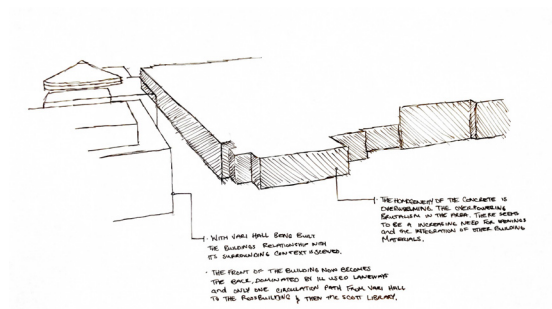 · THE HOMOGENEITY OF THE CONCRETE IS
OVERWHELMING. THE OVERPOWERING
BRUTALISM IN THE AREA. THERE SEEMS
TO BE A INCREASING NEED FOR
and the INTEGRATION OF OTHER BUILDING
MATERIALS.
· WITH VARI HALL BEING BUILT
THE BUILDINGS RELATIONSHIP WITH
ITS SURROUNDING CONTEXT IS
· THE FRONT OF THE BUILDING NOW BECOMES
THE BACK, DOMINATED BY ILL USED LANEWAYS
and ONLY ONE CIRCULATION PATH FROM VARI HALL
TO THE ROSS BUILDING & THEN THE SCOTT LIBRARY.